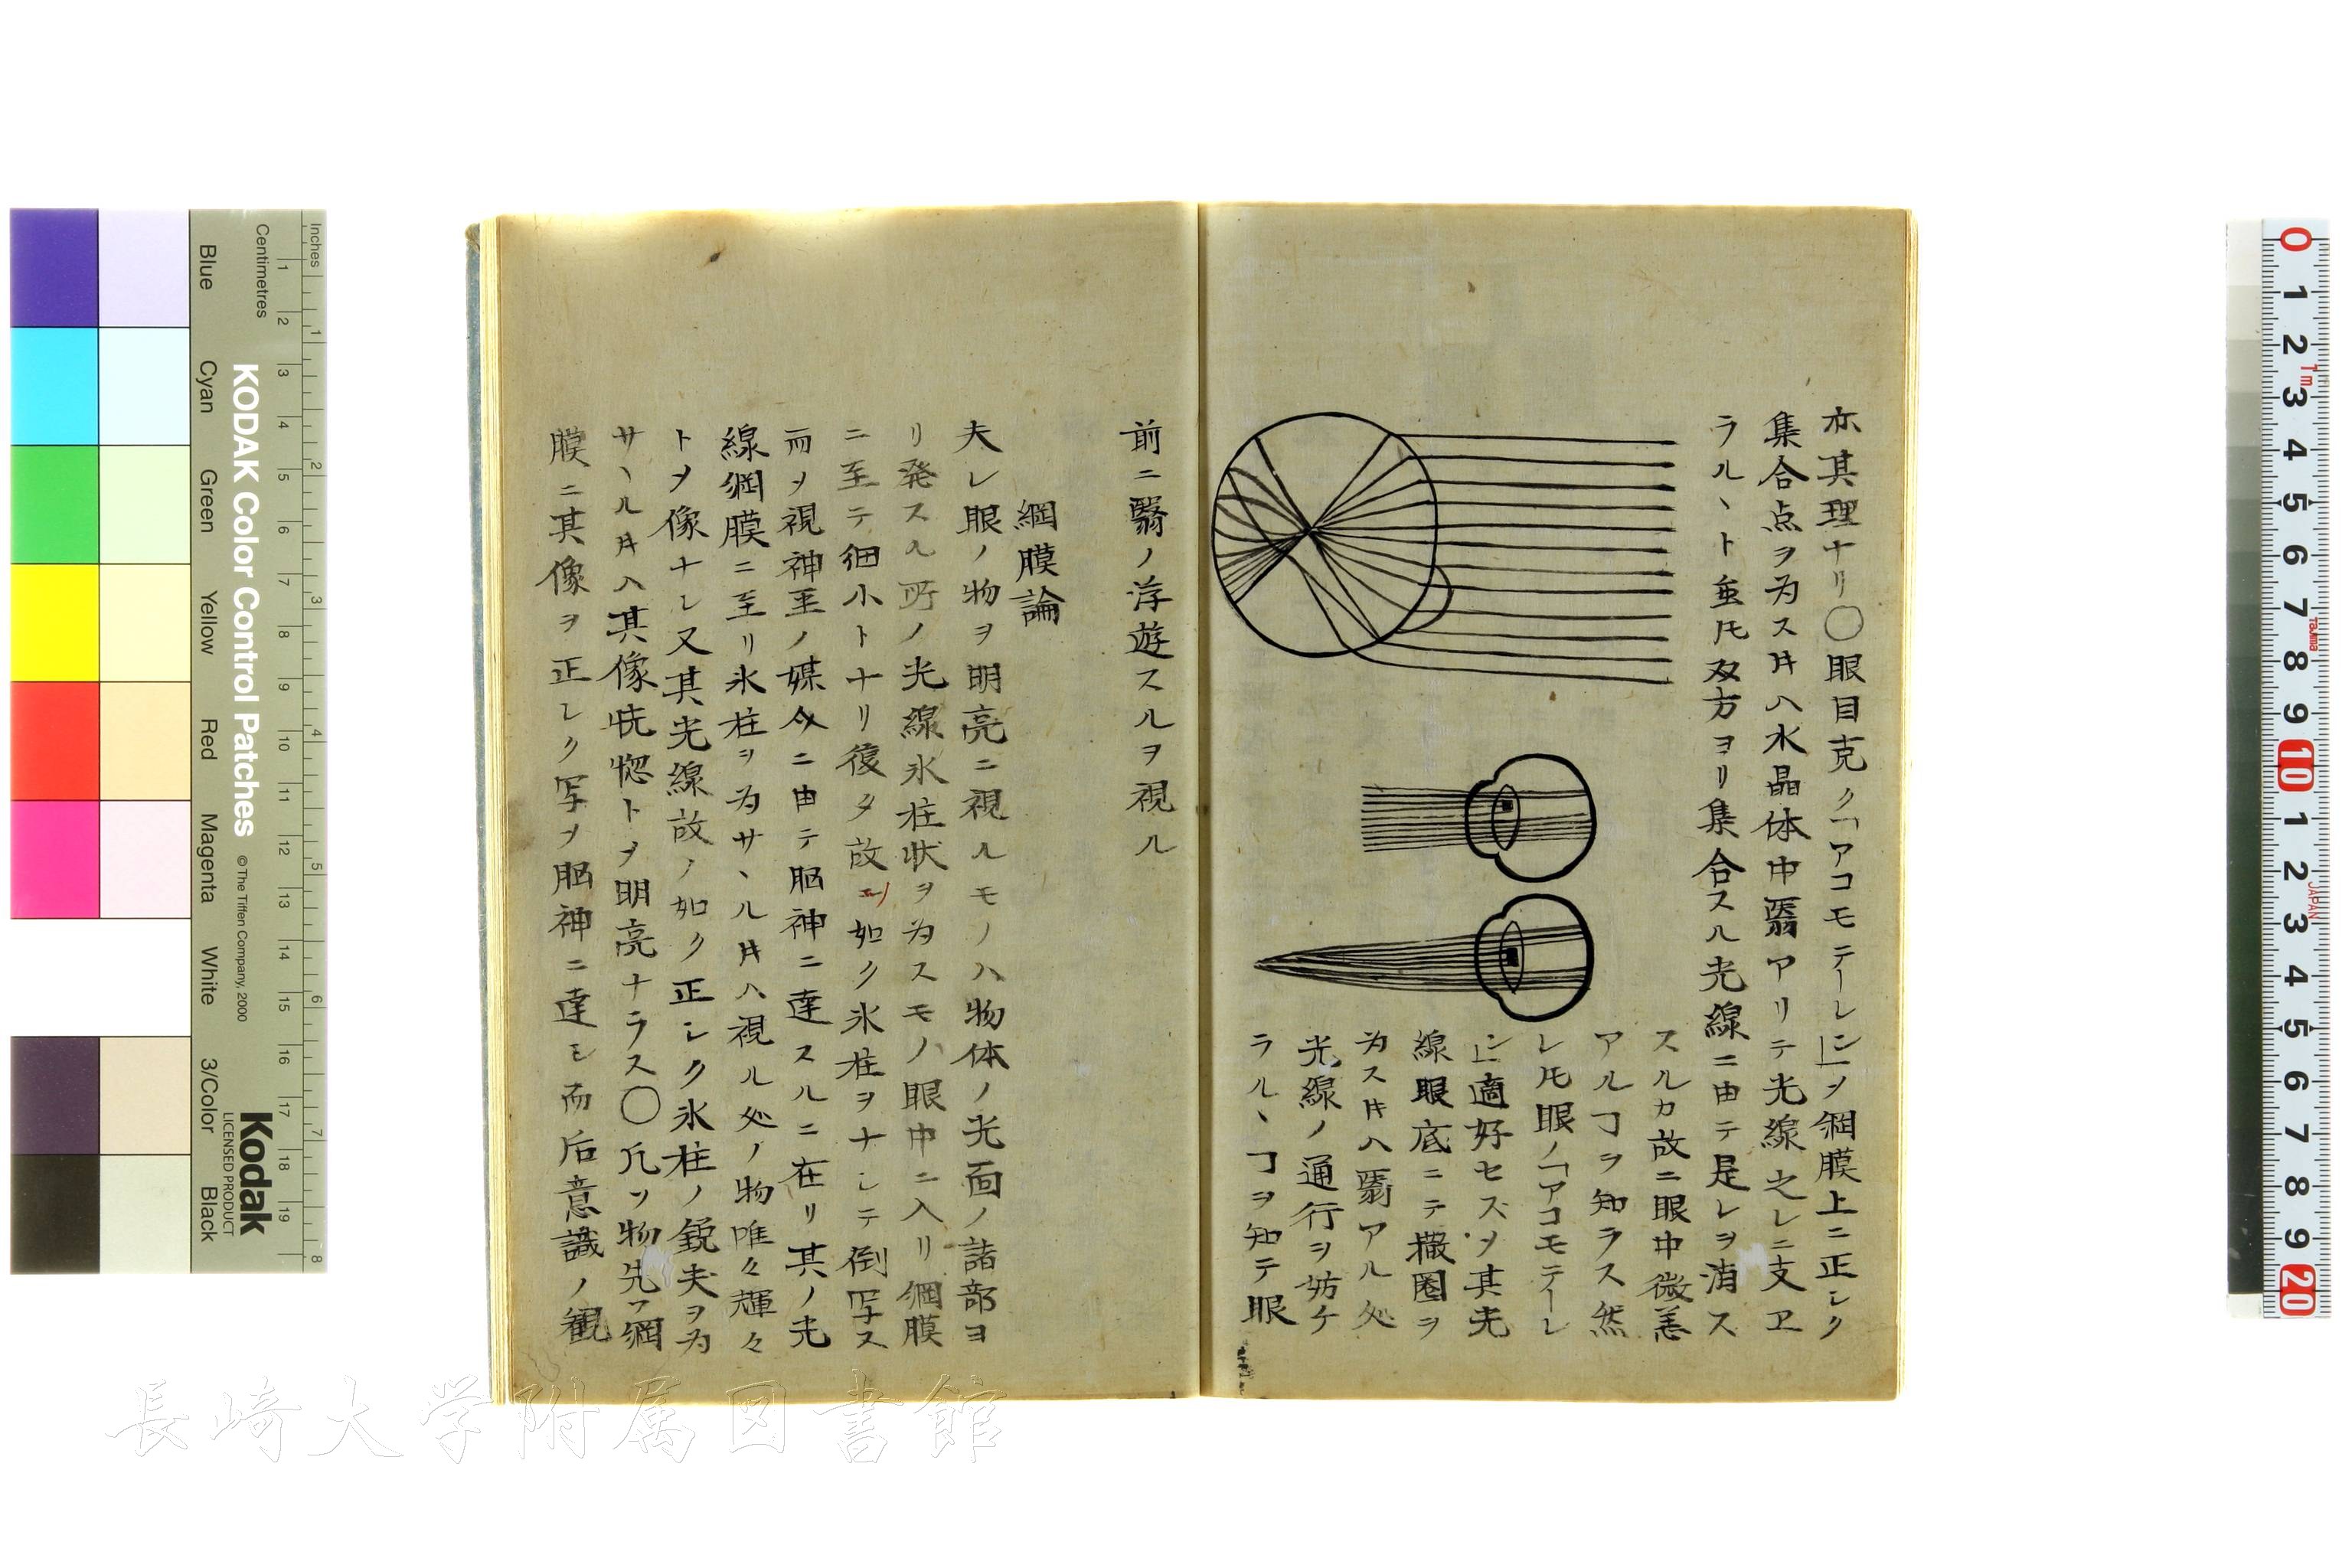 亦其理ナリ〇眼目克ク「アコモテーレン」ヲ網膜上ニ正シク
集合点ヲ為ス𪜈ハ水晶体中翳アリテ光線之レニ支ヱ
ラル丶ト虽𪜈双方ヨリ集合スル光線ニ由テ是レヲ消ス
スルカ故ニ眼中微恙
アルヿヲ知ラス然
レ𪜈眼ノ「アコモテーレ
ン」適好セズヲ其光
線眼底ニテ撒圏ヲ
為ス片ハ翳アル処
光線ノ通行ヲ妨ケ
ラル丶ヿヲ知テ眼
前ニ翳ノ浮遊スルヲ視ル
網膜論
夫レ眼ノ物ヲ明亮ニ視ルモノハ物体ノ光面ノ諸部ヨ
リ発スル所ノ光線氷柱状ヲ為スモノ眼中ニ入リ網膜
ニ至テ細小トナリ復タ故ノ如ク氷柱ヲナシテ倒写ス
而ヲ視神至ノ媒介ニ由テ脳神ニ達スルニ在リ其ノ光
線網膜ニ至リ氷柱ヲ為サ丶ル片ハ視ル処ノ物唯々輝々
トヲ像ナシ又其光線故ノ如ク正シク氷柱ノ鋭夫ヲ為
サ丶ル片ハ其像恍惚トヲ明亮ナラス〇凡ソ物先ツ網
膜ニ其像ヲ正シク写ヲ脳神ニ達シ而后意識ノ観
KODAK Color Control Patches
© The Tiffen Company, 2000
Kodak
LICENSED PRODUCT
Inches
Centimetres
1 2 3 4 5 6 7 8
1 2 3 4 5 6 7 8 9 10 11 12 13 14 15 16 17 18 19
Blue
Cyan
Green
Yellow
Red
Magenta
White
3/Color
Black
0 1 2 3 4 5 6 7 8 9 10 1 2 3 4 5 6 7 8 9 20
1m
Tajima
JAPAN
長崎大学附属図書館